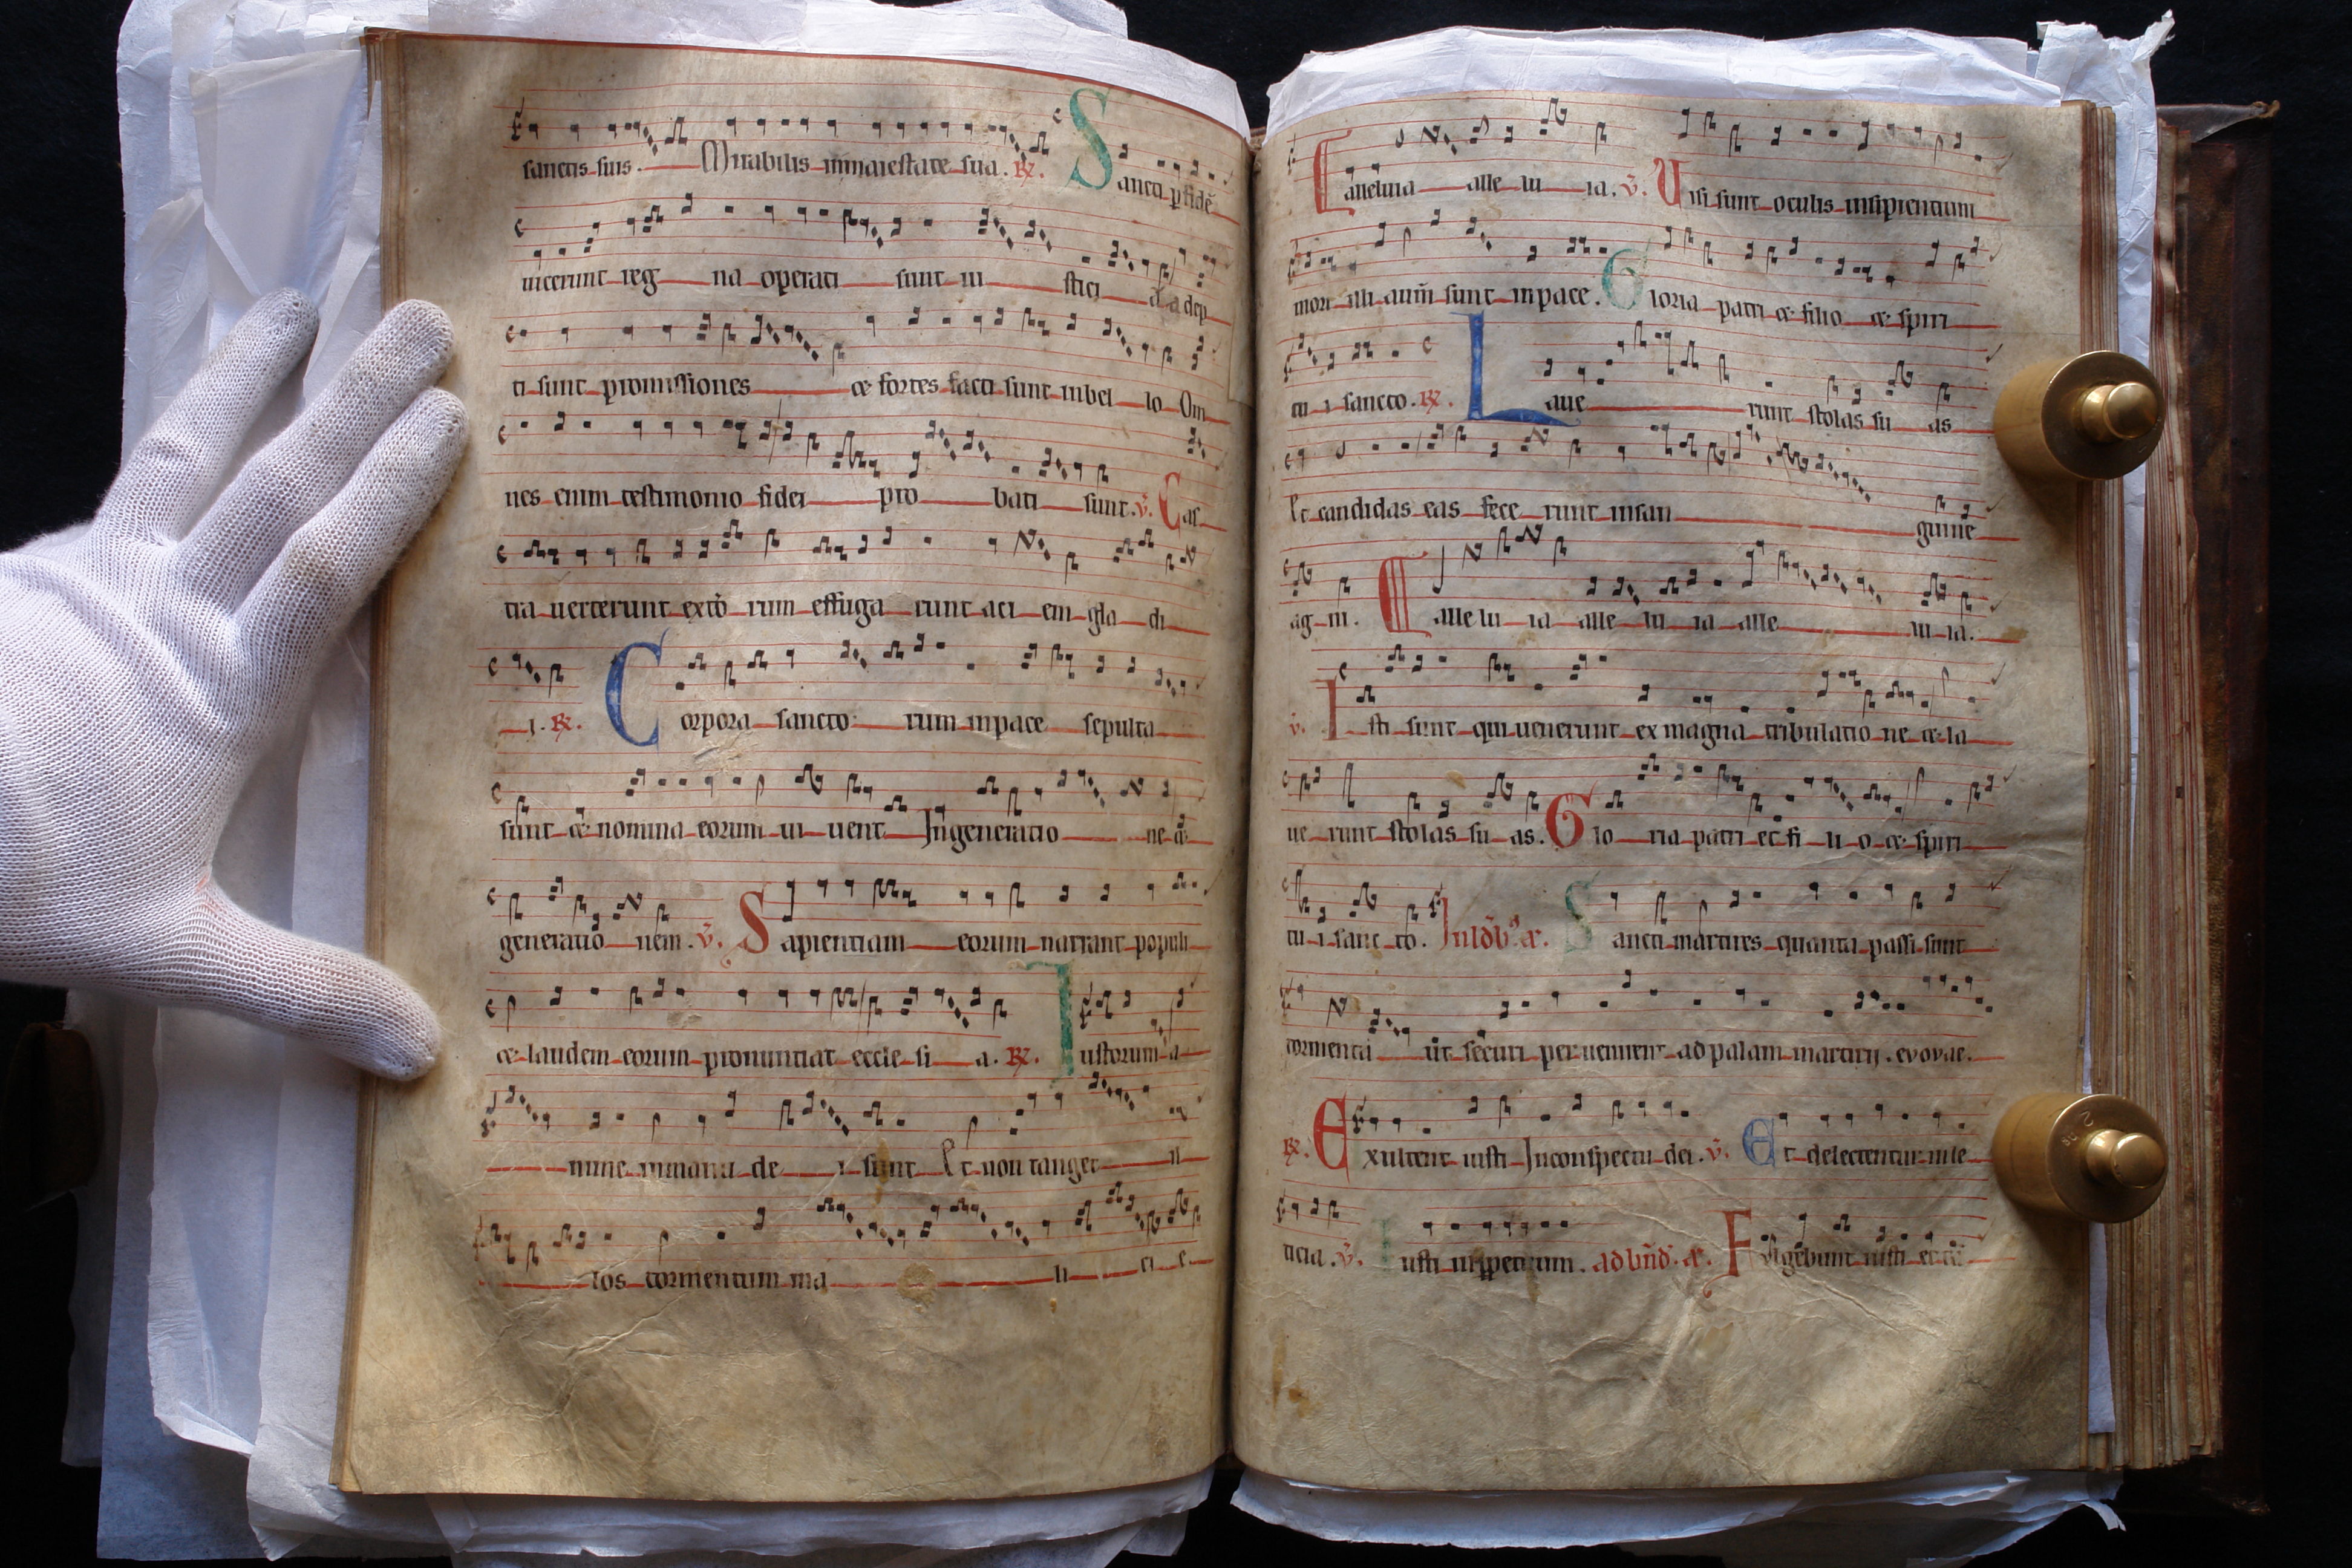 sanctis suis. Mirabilis inmaiestate sua. R. Sancti p fidē
uicerunt reg na operati sunt iu stici a adep
ti sunt promissiones et fortes facti sunt inbel lo Om
nes enim testimonio fidei pro bati sunt. V. Cas
tra uerterunt exto rum effuga runt aci em gla di
i. R. Corpora sancto rum inpace sepulta
sunt et nomina eorum ui uent Ingeneratio ne et
generatio nem. V. Sapientiam eorum narrant populi
et laudem eorum pronuntiat eccle si a. R. Iustorum a
nime inmanu de i sunt Et non tanget il
los tormentum ma li ci e
Ealleluia alle lu ia. V. Uisi sunt oculis insipientium
mori illi autm̄ sunt inpace. Gloria patri et filio et spiri
tu i sancto. R. Laue runt stolas su as
Et candidas eas fece runt insan guine
ag ni. alle lu ia alle lu ia alle lu ia.
V. Isti sunt qui uenerunt ex magna tribulatio ne et la
ue runt stolas su as. Glo ria patri et fi li o et spiri
tu i sanc to. Sancti martires quanta passi sunt
tormenta ut securi peruenirent ad palmam martirij. evovae.
R. Exultent iusti Inconspectu dei. V. Et delectentur inle
ticia. V. Iusti inppetuum. ad bn̄d. a. Fulgebunt iusti